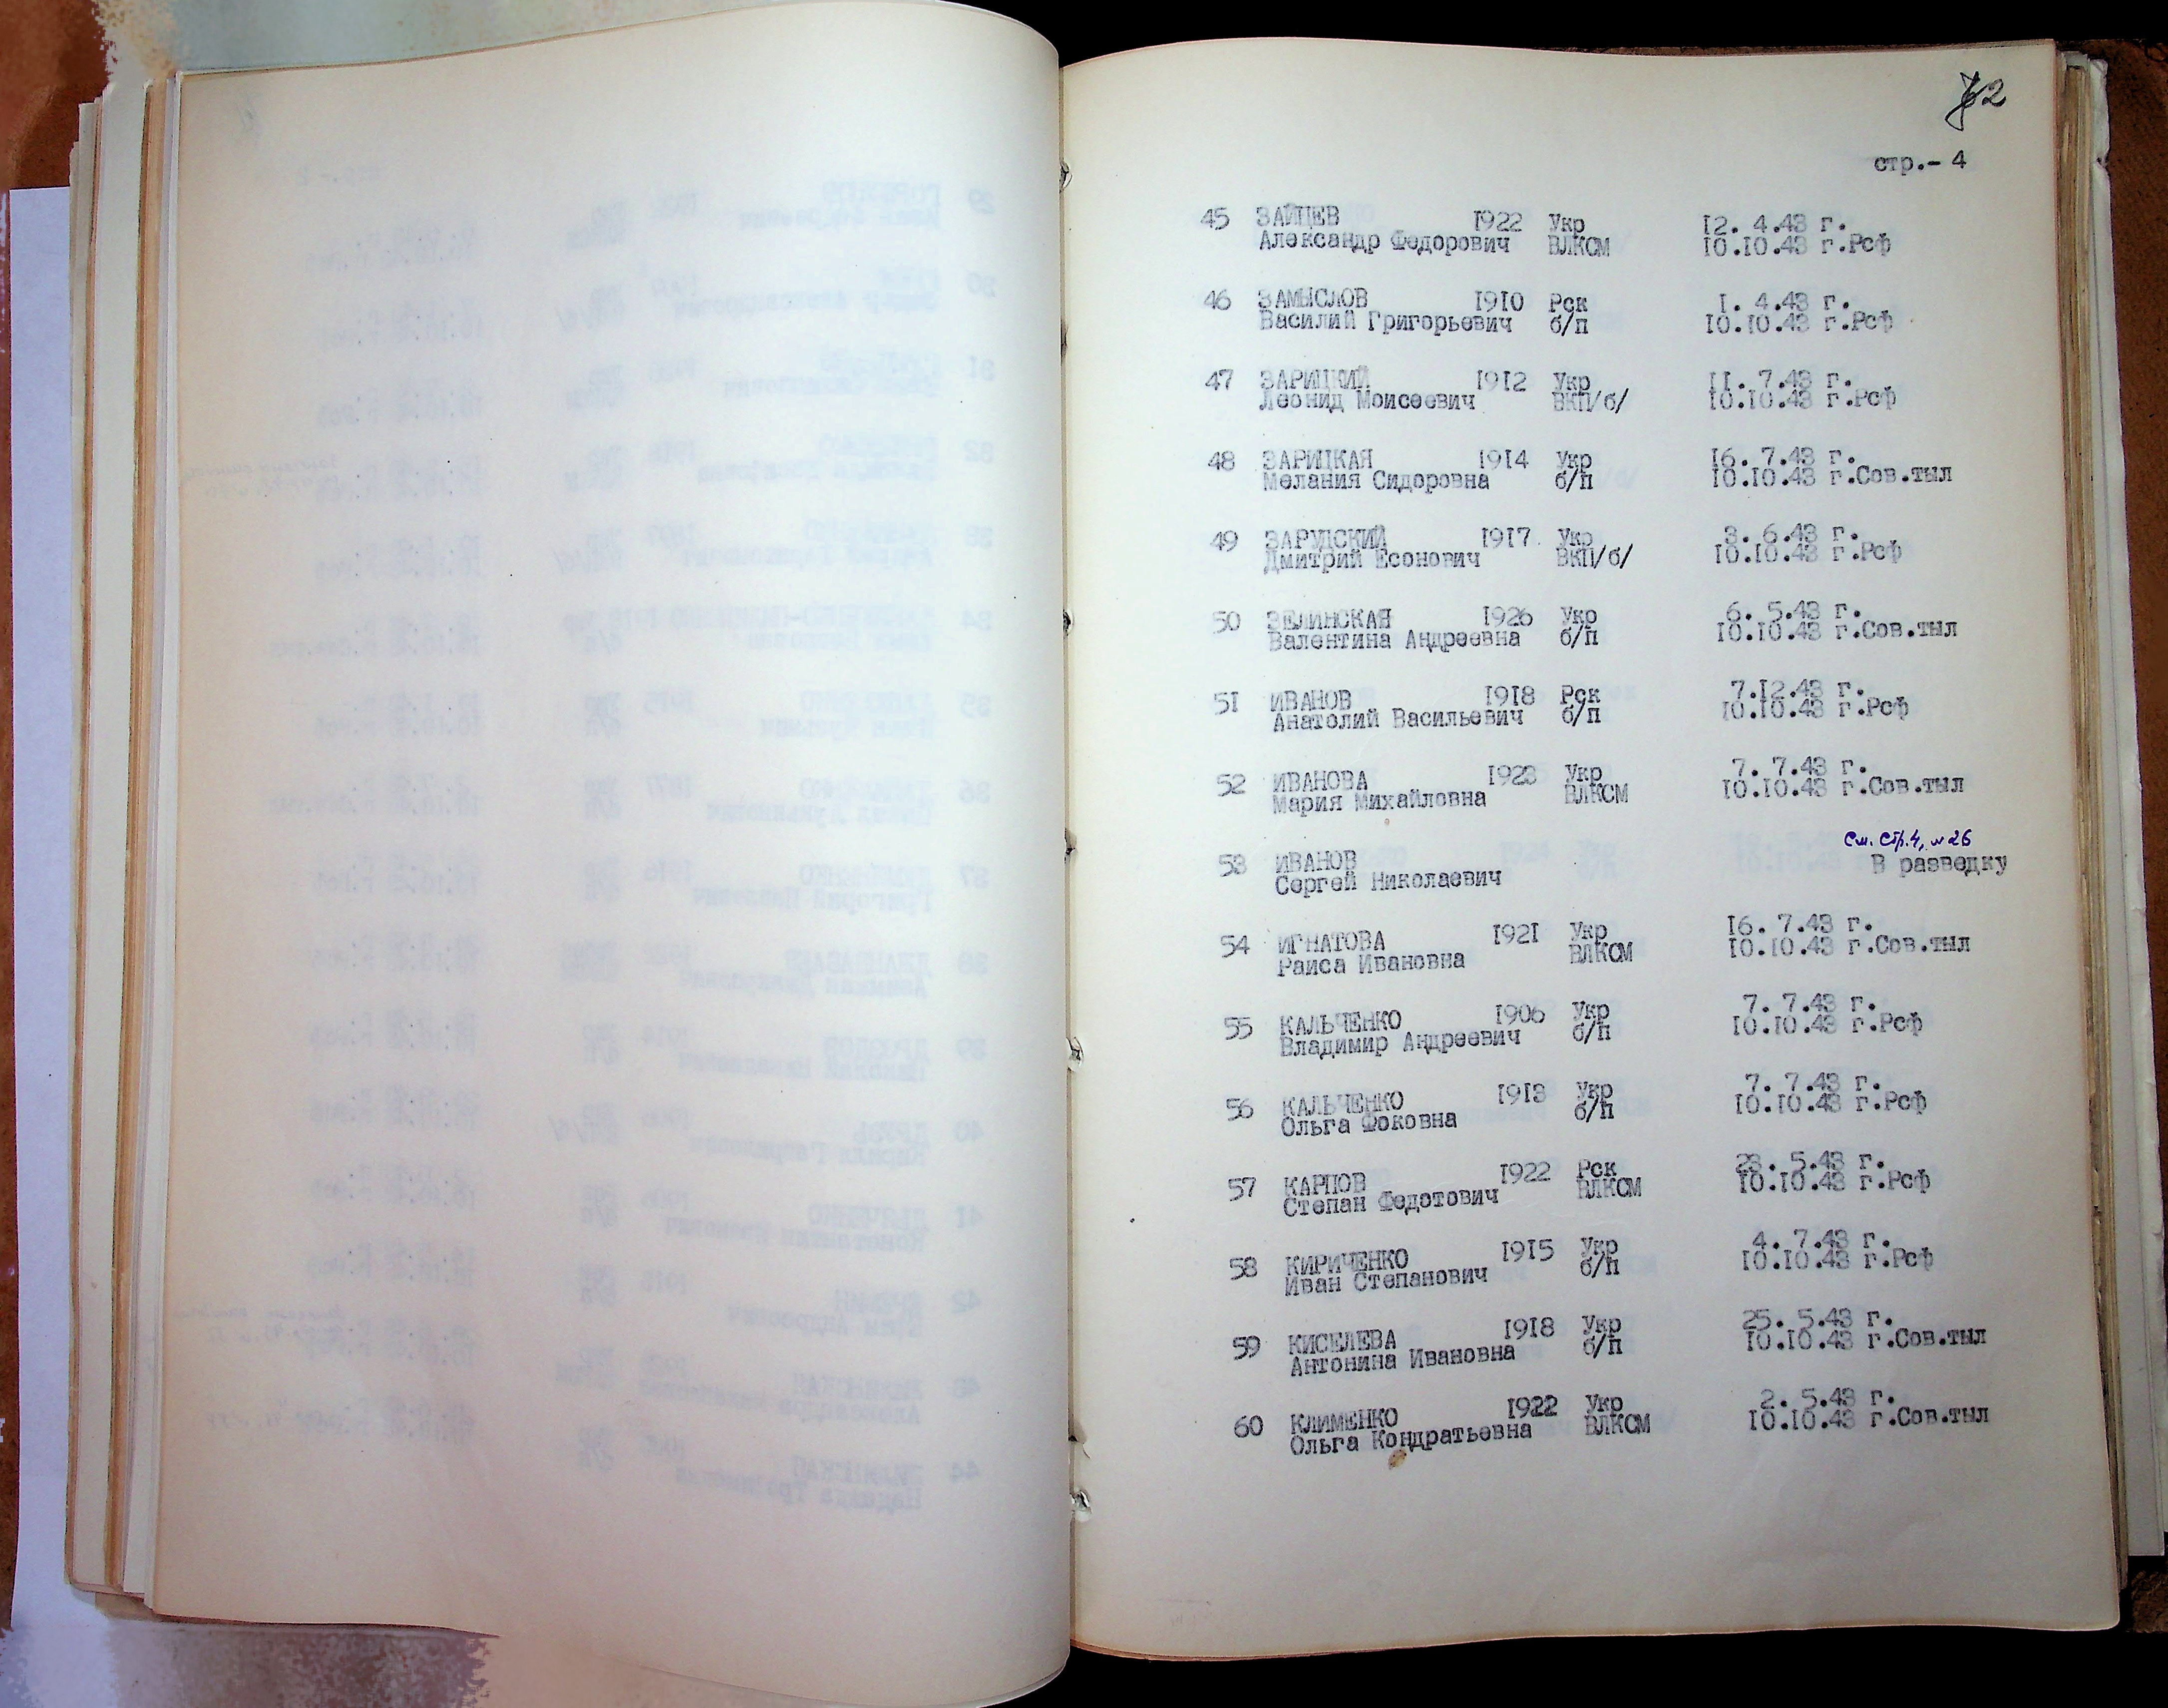 62
стр.- 4
45 ЗАЙЦЕВ 1922 Укр 12. 4.43 г.
Александр Федорович ВЛКСМ 10.10.43 г.Рсф
46 ЗАМЫСЛОВ 1910 Рск 1. 4.43 г.
Василий Григорьевич б/п 10.10.43 г.Рсф
47 ЗАРИЦКИЙ 1912 Укр 11. 7.43 г.
Леонид Моисеевич ВКП/б/ 10.10.43 г.Рсф
48 ЗАРИЦКАЯ 1914 Укр 16. 7.43 г.
Мелания Сидоровна б/п 10.10.43 г.Сов.тыл
49 ЗАРУДСКИЙ 1917 Укр 3. 6.43 г.
Дмитрий Есонович ВКП/б/ 10.10.43 г.Рсф
50 ЗЕЛИНСКАЯ 1926 Укр 6. 5.43 г.
Валентина Андреевна б/п 10.10.43 г.Сов.тыл
51 ИВАНОВ 1918 Рск 7.12.43 г.
Анатолий Васильевич б/п 10.10.43 г.Рсф
52 ИВАНОВА 1923 Укр 7. 7.43 г.
Мария Михайловна ВЛКСМ 10.10.43 г.Сов.тыл
См. стр.4, №26
53 ИВАНОВ В разведку
Сергей Николаевич
54 ИГНАТОВА 1921 Укр 16. 7.43 г.
Раиса Ивановна ВЛКСМ 10.10.43 г.Сов.тыл
55 КАЛЬЧЕНКО 1906 Укр 7. 7.43 г.
Владимир Андреевич б/п 10.10.43 г.Рсф
56 КАЛЬЧЕНКО 1913 Укр 7. 7.43 г.
Ольга Фоковна б/п 10.10.43 г.Рсф
57 КАРПОВ 1922 Рск 23. 5.43 г.
Степан Федотович ВЛКСМ 10.10.43 г.Рсф
58 КИРИЧЕНКО 1915 Укр 4. 7.43 г.
Иван Степанович б/п 10.10.43 г.Рсф
59 КИСЕЛЕВА 1918 Укр 25. 5.43 г.
Антонина Ивановна б/п 10.10.43 г.Сов.тыл
60 КЛИМЕНКО 1922 Укр 2. 5.43 г.
Ольга Кондратьевна ВЛКСМ 10.10.43 г.Сов.тыл